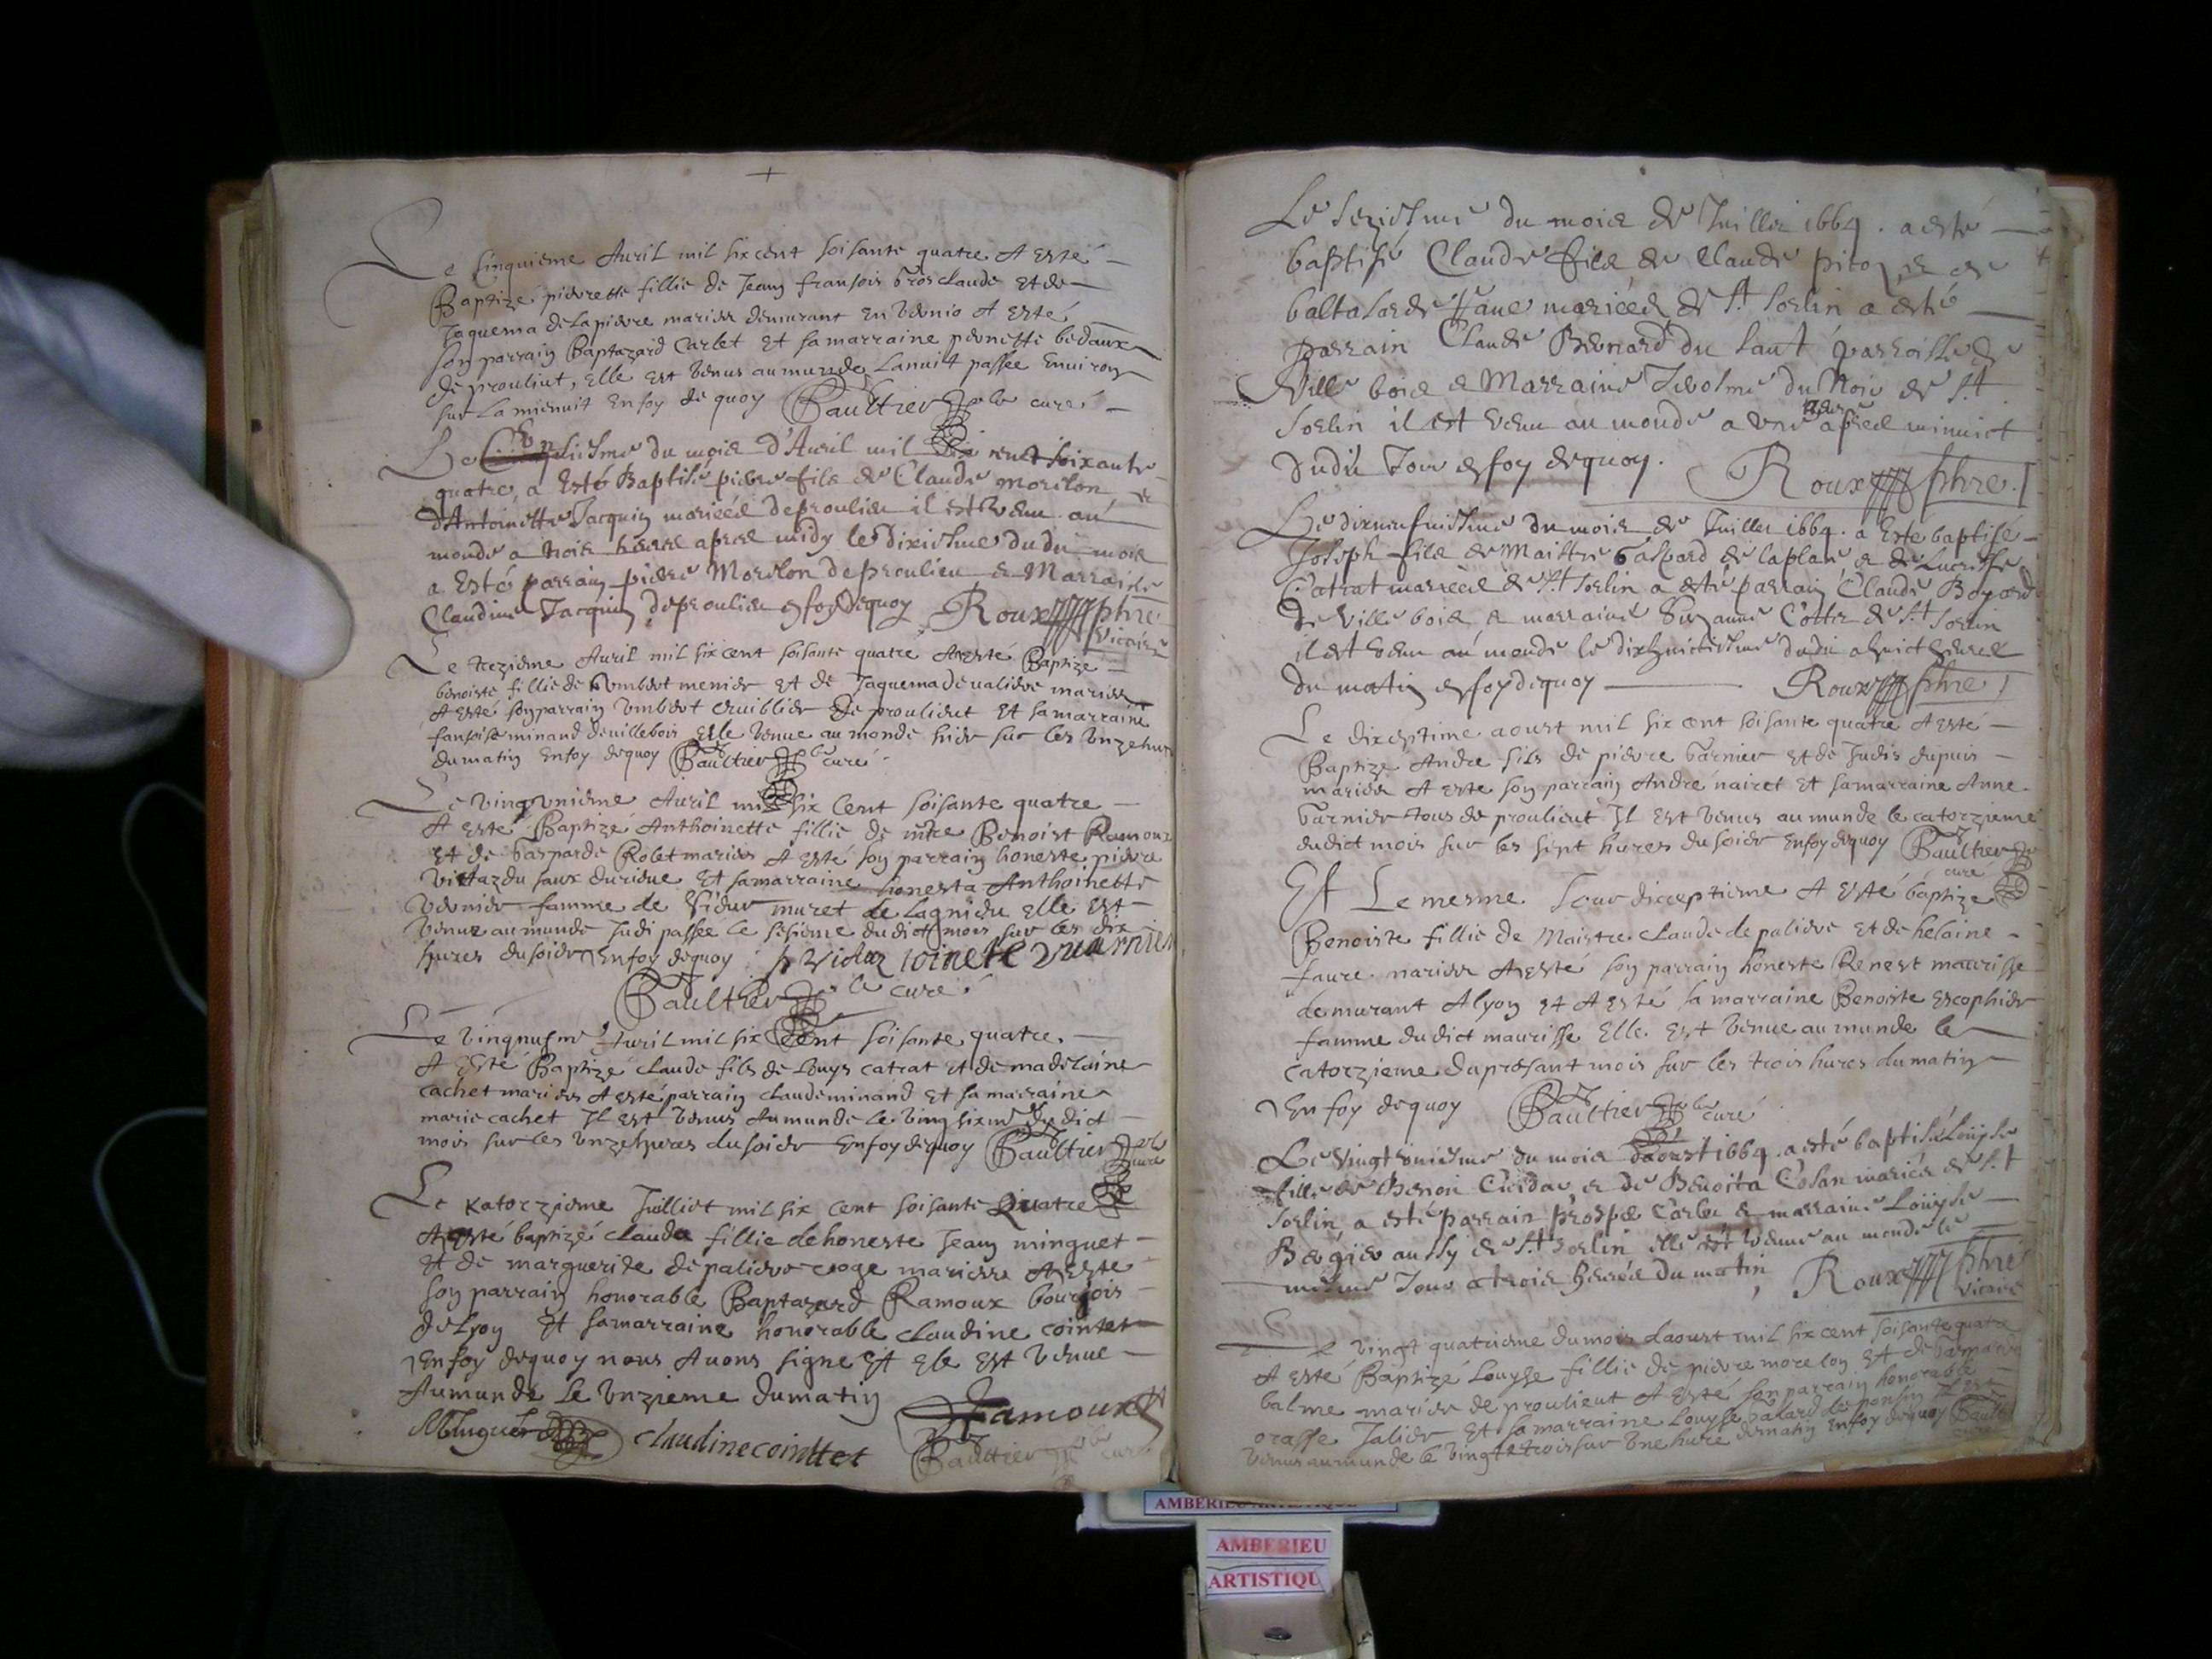 Le sinquieme Auril mil six cent soisante quatre A esté
Baptizé pierrette fillie de Jean fransois Grosclaude et de
Jaquema de la pierre maries demurant en A esté
son parrain Baptazard Carlet et sa marraine pernette bedaux
de proulieut, elle est venus au munde Lanuit passée Enuiron
sur La mienuit En foy de quoy Gaultier curé
Le du mois d'Auril mil six cent soixante
quatre, a Esté Baptisé pierre fils de Claude Morelon, &
d'Antoinette Jacquin mariéés de proulieu il est venu au
monde a trois heures apres midy le dixiesme dudit mois
a Esté parrain pierre Morelon de proulieu & Marraine
Claudine Jacquin de proulieu en foy de quoy Roux pbre
vicaire
Le trezieme Auril mil six cent soisante quatre A esté Baptize
benoiste fillie de Umbert menier et de Jaquema de maries
A esté son parrain Umbert Cruiblier de proulieut et sa marraine
fansoise minand de uillebois Elle venue au monde hier sur les unze hures
du matin En foy de quoy Gaultier curé
Le vingunieme Auril mil six Cent soisante quatre
A esté Baptizé Anthoinette fillie de mtre Benoist Ramoux
et de Gasparde Robet maries A esté son parrain honeste pierre
du saux et sa marraine honesta Anthoinette
famme de muret de Lagnieu elle est
venue au munde Judi passée le sesieme dudict mois sur les dix
hures du soier En foy de quoy
Gaultier le curé
Le Auril mil six Cent soisante quatre
A Esté Baptizé Claude fils de Louys catrat et de madelaine
cachet maries A esté parrain claude minand et sa marraine
marie cachet Il est venus Au munde le ving dudict
mois sur les unze hures du soier En foy de quoy Gaultier curé
Le Katorzieme Julliet mil six Cent soisante Quatre
A esté baptizé claude fillie de honeste Jean minguet
et de marguerite de maries A este
son parrain honorable Baptazard Ramoux bourjois
de Lyon et sa marraine honorable claudine cointet
En foy de quoy nous Auons signe et ele est venue
Au munde Le unzieme du matin Ramoux
claudine cointtet Gaultier curé
Le seziesme du mois de Juillet 1664. a esté
baptisé Claude fils de Claude & de
mariéés de St Sorlin a esté
parrain Claude Bernard du Saut parroisse de
Ville bois & Marraine du Noir de St
Sorlin il est venu au monde a une heure apres minuict
dudit Jour en foy de quoy. Roux pbre.
Le dixneufuiesme du mois de Juillet 1664. a Este baptisé
Joseph fils de Maistre Gaspard de laplace & de Lucresse
Catrat mariéés de St Sorlin a esté parrain Claude Bernard
de Ville bois & marraine Suzanne Cottet de St Sorlin
il est venu au monde le dixhuictiesme dudit a huict heures
du matin en foy de quoy Roux pbre
Le dixceptime aoust mil six cent soisante quatre A esté
Baptizé Andre fils de pierre Garnier et de Judis dupuis
maries A este son parrain André nairet et sa marraine Anne
Garnier tous de proulieut Il est venus au munde le catorzieme
dudict mois sur les sept hures du soier En foy de quoy Gaultier
curé
Et Le mesme Jour dixceptieme A esté baptize
Benoiste fillie de Maistre claude de paliere et de helaine
faure maries A esté son parrain honeste Renest maurisse
demurant A lyon et A esté sa marraine Benoiste escophier
famme dudict maurisse Elle est venue au munde le
Catorzieme du presant mois sur les trois hures du matin
En foy de quoy Gaultier curé
Le vingt uniesme du mois d'aoust 1664. a esté baptisé Loüyse
fille de Benoit Cuidat & de Benoita Cosan mariés de St
Sorlin a esté parrain prosper Carlet & marraine Loüyse
Bergier aussy de St Sorlin elle est venue au monde le
mesme Jour a trois heures du matin, Roux pbre
vicaire
Le vingt quatrieme du mois daoust mil six cent soisante quatre
A esté Baptizé Louyse fillie de pierre morelon et de
balme maries de proulieut A esté son parrain honorable
orasse Jalier et sa marraine Louyse Il est
venus au munde le vingt et trois sur une hure du matin En foy de quoy
AMBERIEU ARTISTIQUE
AMBERIEU
ARTISTIQU